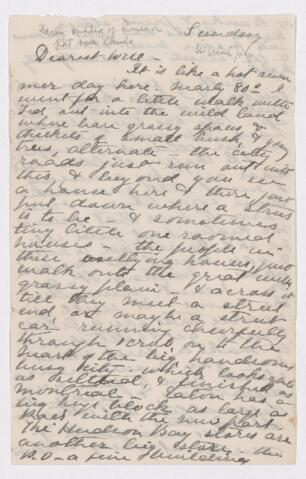 Early building of pioneer
Sunday
Dearest Will —
It is like a hot sum
mer day here. nearly 80° I
went for a little walk with
Ted out into the wild land
where bare grassy spaces &
thickets of small bush & gray
trees, alternate — the city
roads just run out into
this & beyond you see
a house here & there just
put down where a street
is to be — & sometimes
tiny little one roomed
houses — the people in
these outlying houses, just
walk onto the great wild
grassy plain — & across it
till they meet a street
end, or maybe a street
car running cheerfully
through scrub, on to the
heart of the big handsome
busy city — which looks just
as settled, & finished as
Montreal — Eaton has a
big block as large as
with the new part —
The Hudson Bay stores are
another big store — the
P.O — a fine building